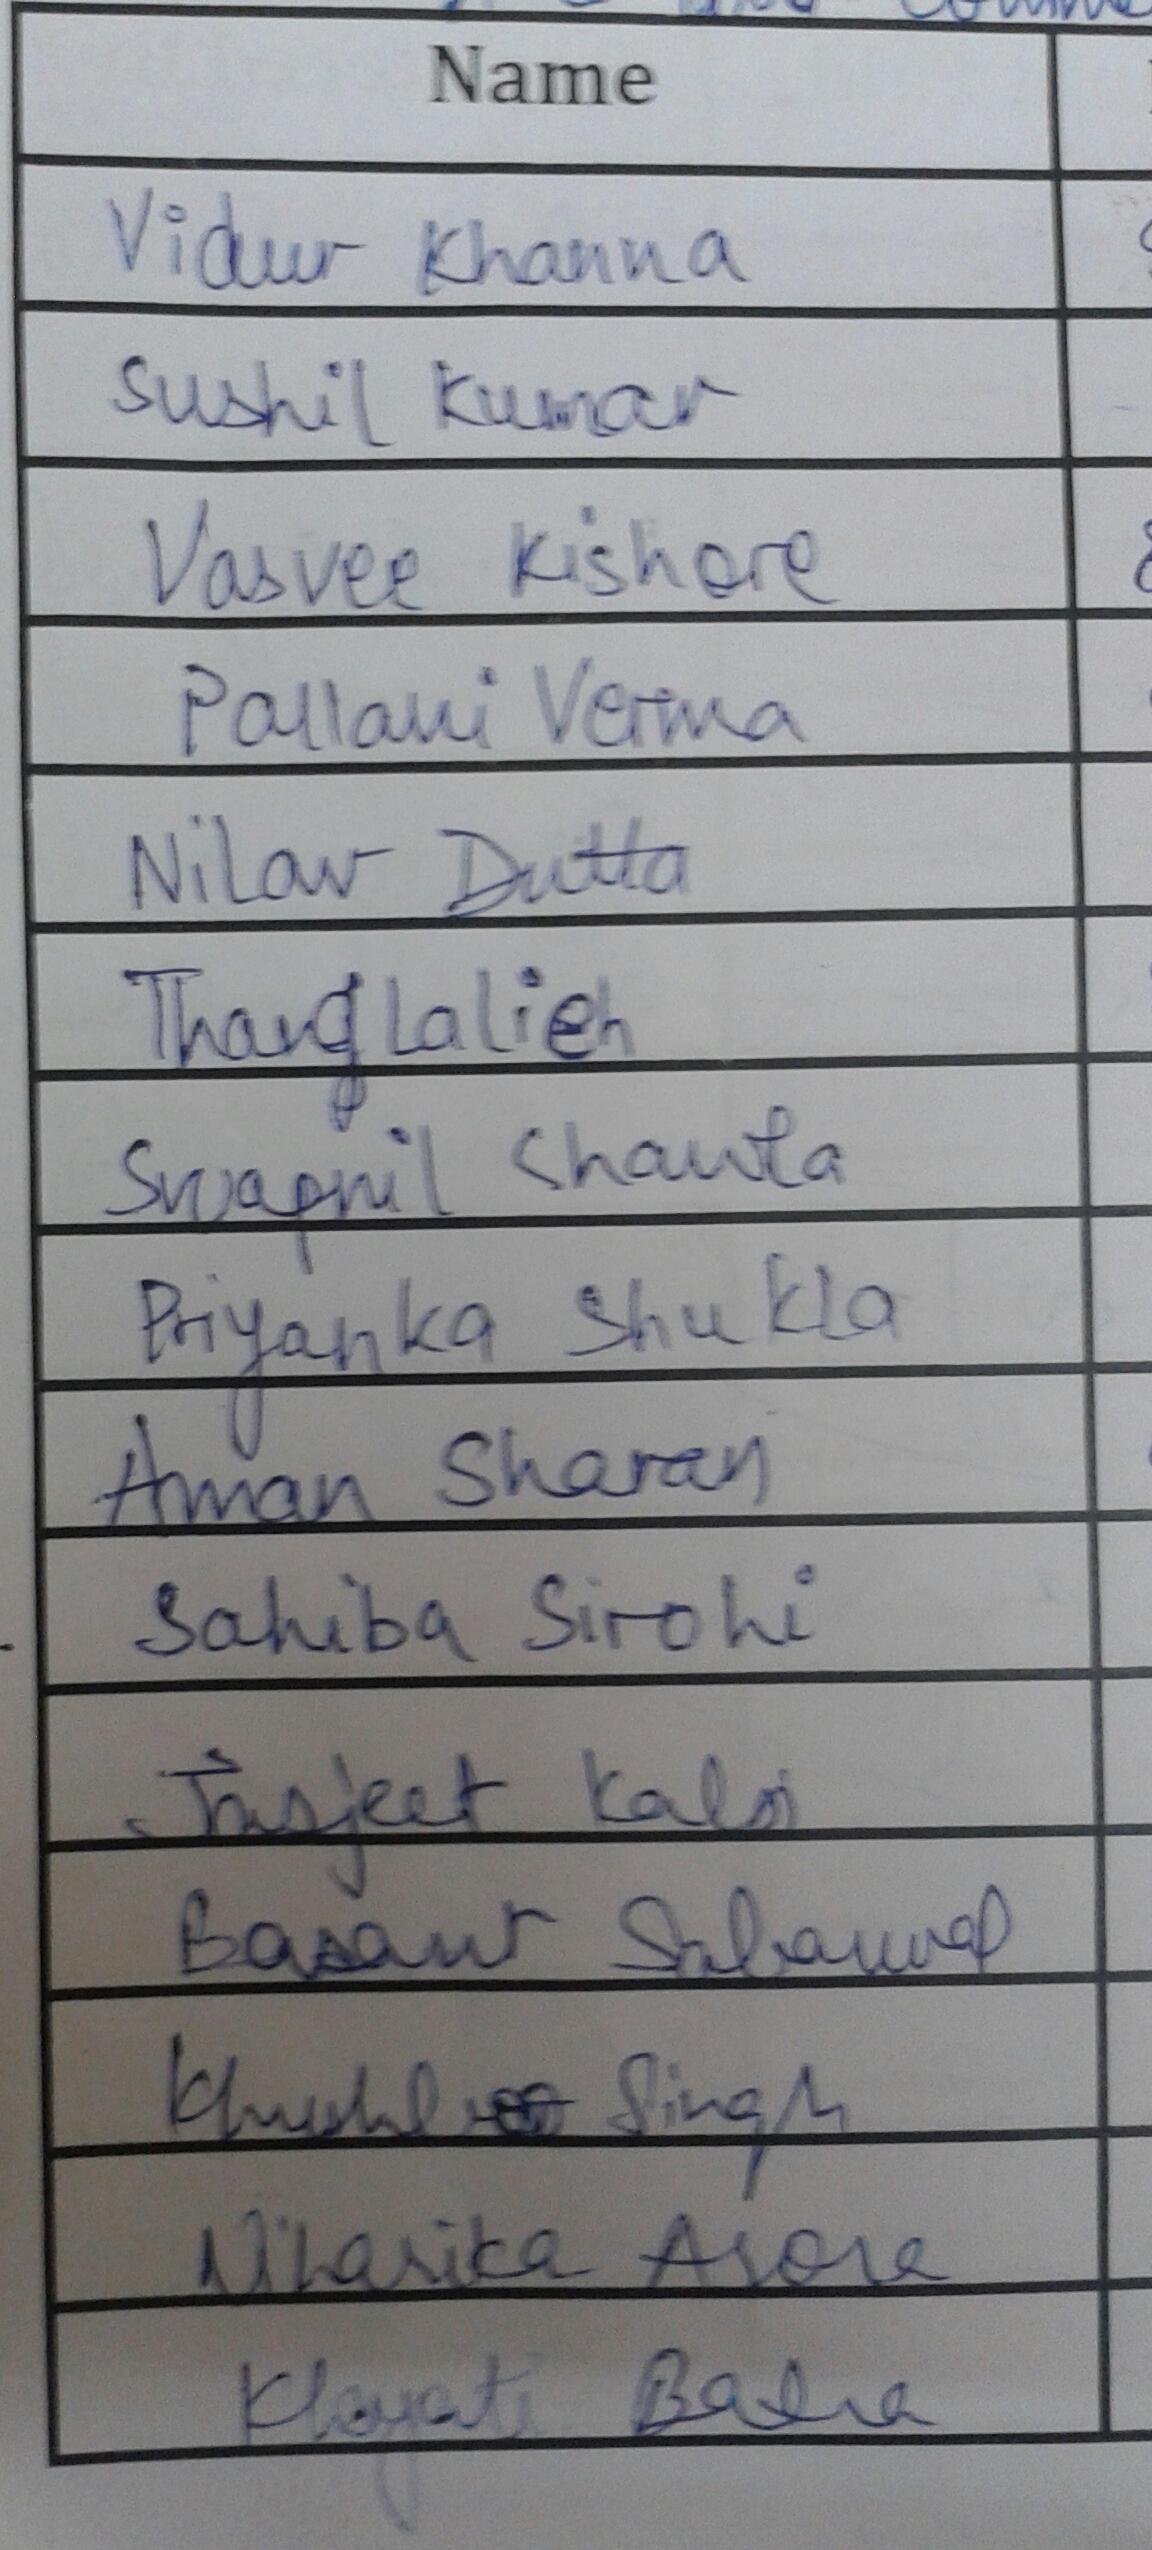 Name
Vidur Khanna
Sushil Kumar
Vasvee Kishore
Pallavi Verma
Nilav Dutta
Thanglalieh
Swapnil Chawla
Priyanka Shukla
Aman Sharan
Sahiba Sirohi
Jasjeet Kalsi
Basant
Singh
Niharika Arora
Khyati Batra